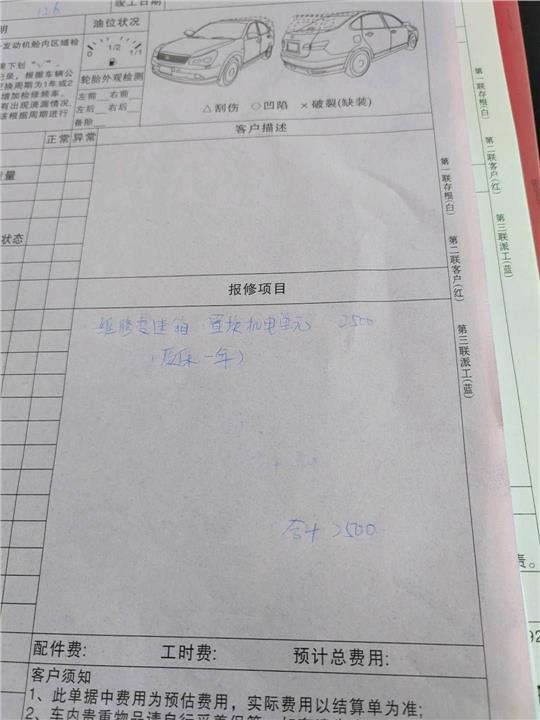 126
竣工日期
明
油位状况
发动机舱内区域检
0 1/2 1/1
课下划"√"。
记录。根据车辆公
更换周期为1年或2
增加检修频率。
有出现滴漏情况,
该根据周期进行
轮胎外观检测
左前 右前
左后 右后
备胎
△刮伤 ○凹陷 ×破裂(缺装)
正常 异常
客户描述
量
状态
报修项目
维修变速箱(置换机电单元 2500
(质保一年)
合计 2500
配件费: 工时费: 预计总费用:
客户须知
1、此单据中费用为预估费用,实际费用以结算单为准;
2、车内贵重物品请自行妥善保管,
第一联存根(白)
第二联客户(红)
第三联派工(蓝)
第一联存根(白)
第二联客户(红)
第三联派工(蓝)
责。
92